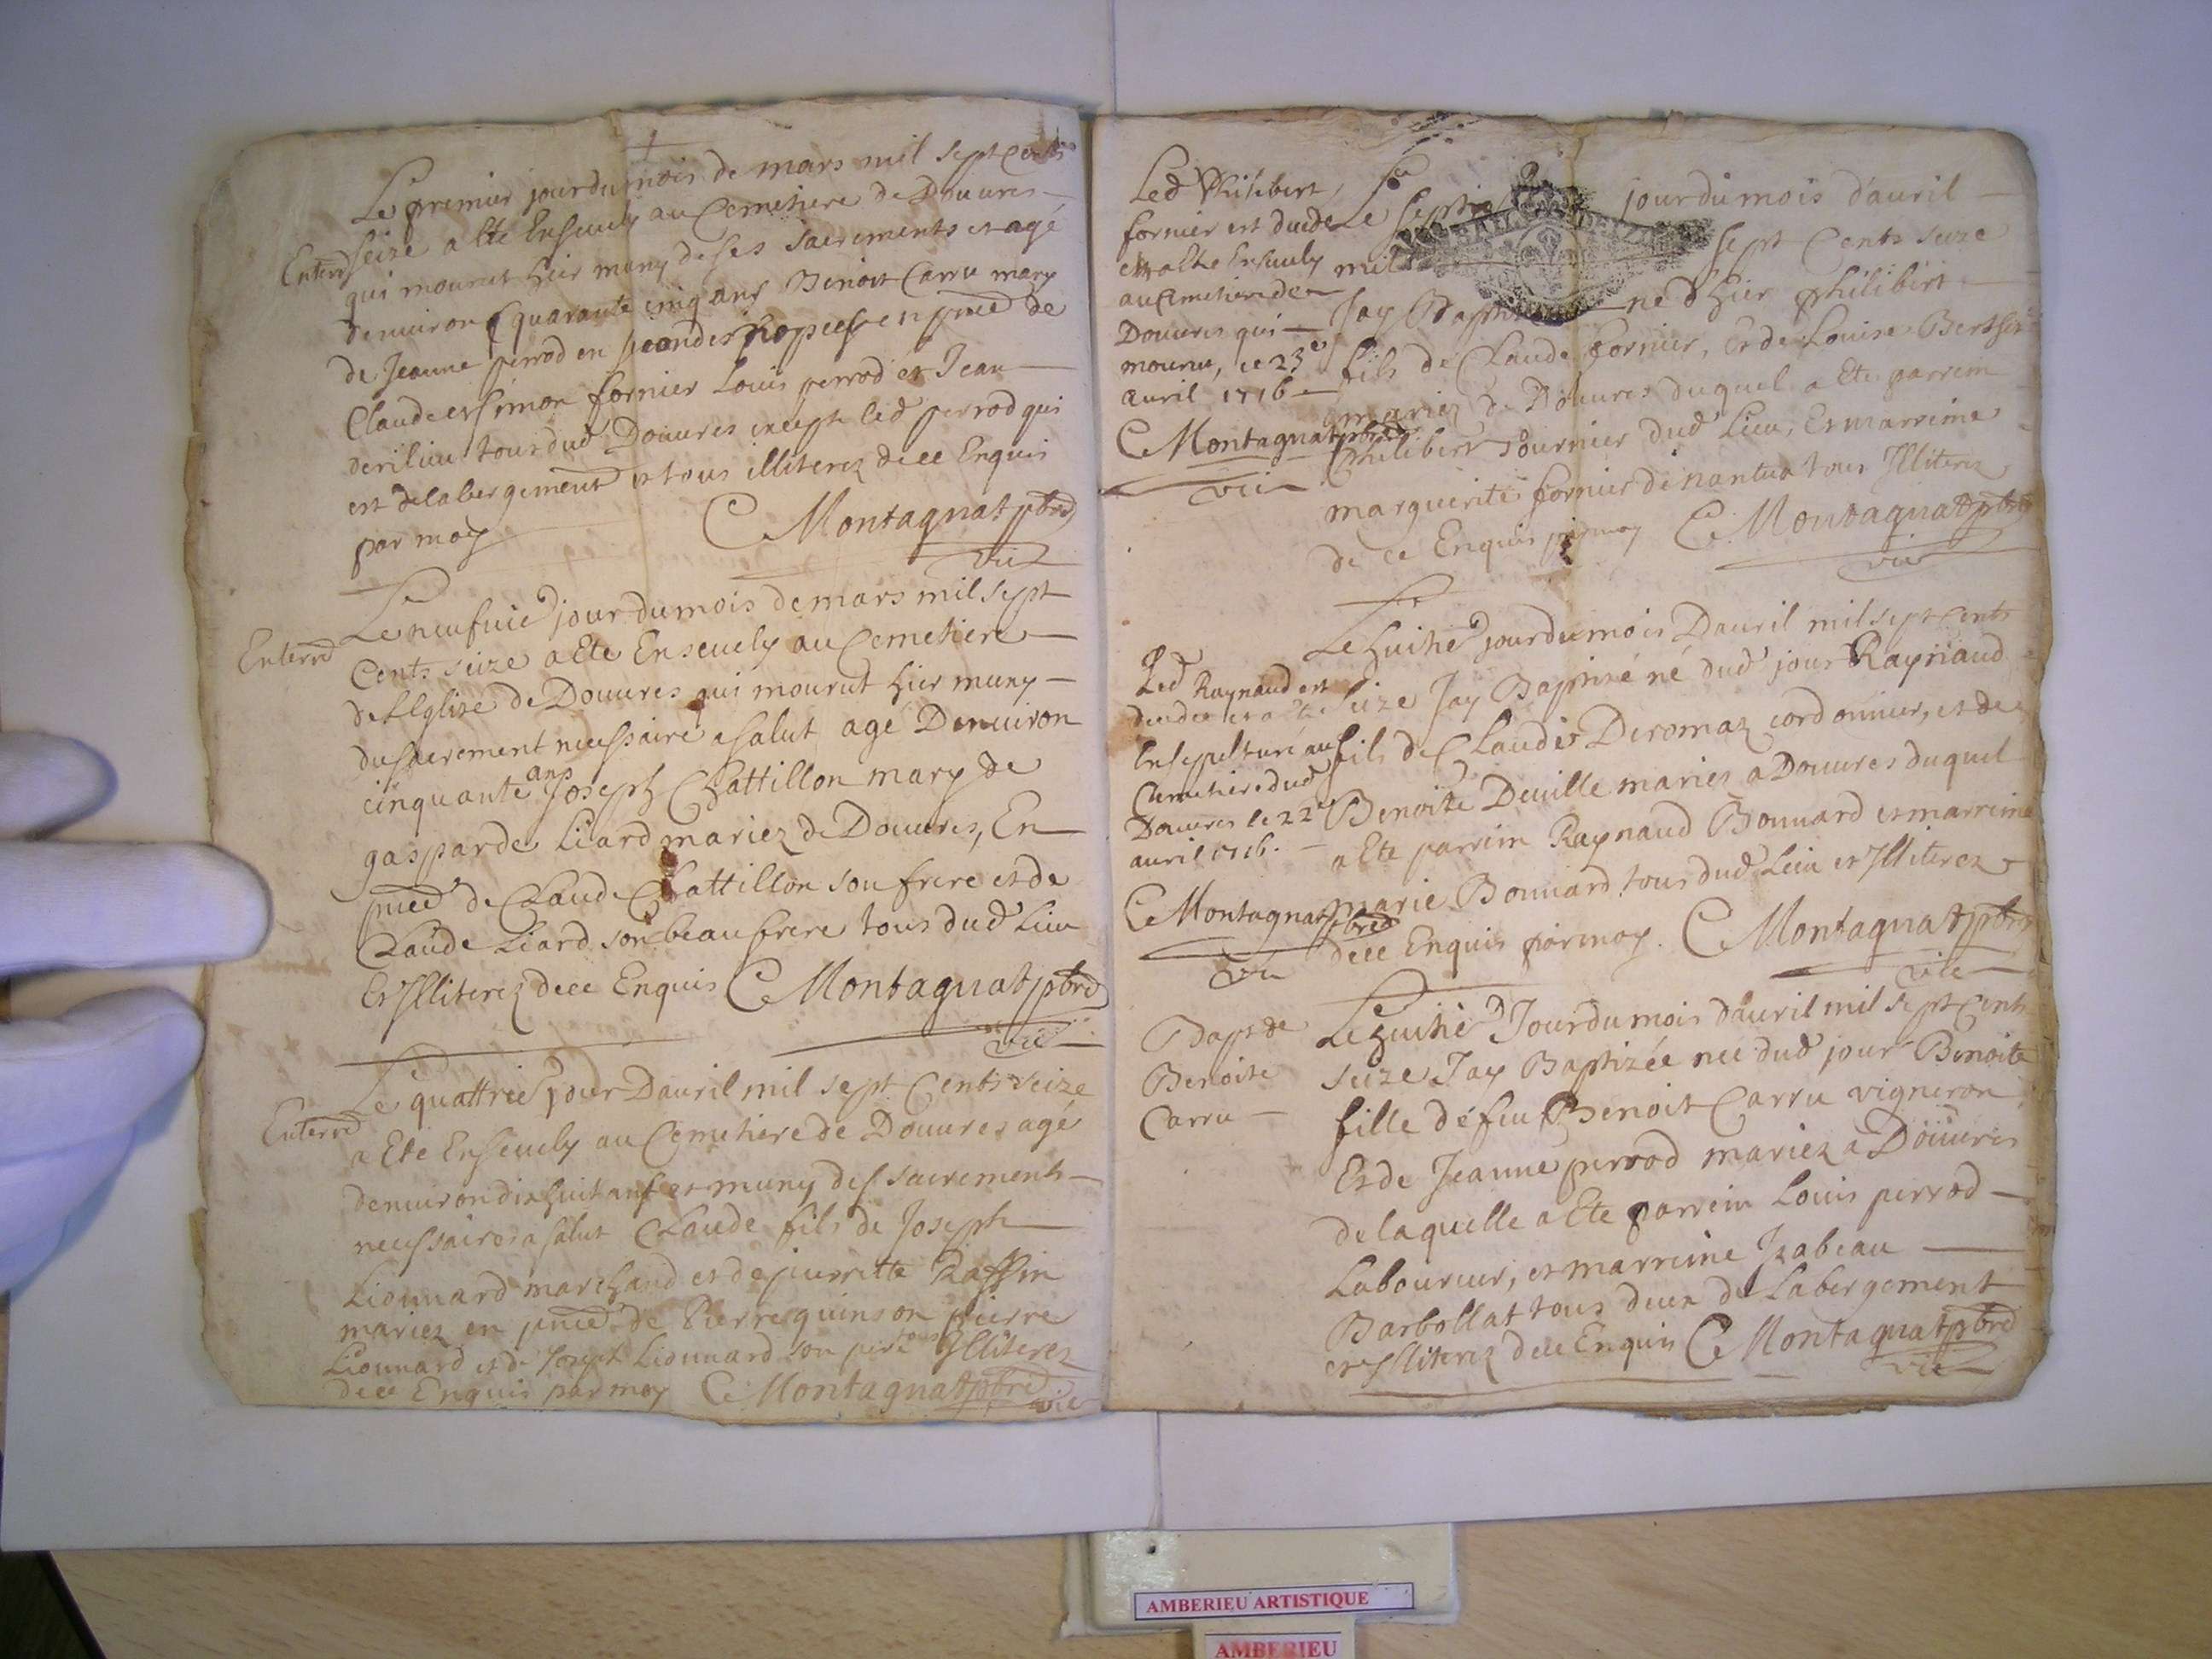 Le premier jour du mois de mars mil sept Cents
Enterrd
seize a Ete Ensevely au Cemetiere de Douures
qui mourut hier muny de ses sacrements et agé
denuiron quarante cinq ans Benoit Carru mary
de Jeanne perrod en en pnce de
Claude et simon fornier Louis perrod et Jean
tous dud Douures excepte led perrod qui
est de labergement et tous illiterez de ce Enquis
par moy C Montagnat pbre
vic
Le neufuie jour du mois de mars mil sept
Enterrd
Cents seize a Ete Enseuely au Cemetiere
de LEglise de Douures qui mourut hier muny
du sacrement necessaire a salut agé Denuiron
cinquante ans Joseph Chattillon mary de
gasparde Liard mariez de Douures, En
pnce de Claude Chattillon son frere et de
Claude Liard son beaufrere tous dud Lieu
Et Illiterez de ce Enquis C Montagnat pbre
vic
Le quattrie jour Dauril mil sept Cents seize
Enterrd
a Ete Enseuely au Cemetiere de Douures agé
denuiron dix huit ans et muny des sacrements
necessaires a salut Claude fils de Joseph
Liounard marchand et de pierrette Raffin
mariez en pnce de Pierre quinson pierre
Liounard et de Joseph Liounard son pere tous Illiterez
de ce Enquis par moy C Montagnat pbre
vic
Led Philibert
fornier est
a Ete Enseuely
au Cemetiere de
Douures qui
mouru, le 23e
auril 1716
C Montagnat pbre
vic
Le jour du mois d'auril
mil sept Cents seize
Jay Baptisé né d'hier philibert
fils de Claude fornier, et de Louise
mariez de Douures duquel a Ete parrein
Philibert fournier dud Lieu, Et marreine
marguerite fornier de nantua tous Illiterez
de ce Enquis par moy C Montagnat pbre
vic
Led Raynaud est
decede et a Ete
Ensepulturé au
Cemetiere dud
Douures le 22e
auril 1716.
C Montagnat pbre
vic
Le huitie jour du mois Dauril mil sept Cents
seize Jay Baptizé né dud jour Raynaud
fils de Claude Deromaz cordonnier, et de
Benoite Deuille mariez a Douures duquel
a Ete parrein Raynaud Bonnard et marreine
marie Bonnard tous dud Lieu et Illiterez
de ce Enquis par moy. C Montagnat pbre
vic
Bapt de
Benoite
Carru
Le huitie Jour du mois dauril mil sept Cents
seize Jay Baptizée née dud jour Benoite
fille de feu Benoit Carru vigneron
Et de Jeanne perrod mariez a Douures
de laquelle a Ete parrein Louis perrod
Laboureur, et marreine Izabeau
Barbollat tous deux de Labergement
et Illiterez de ce Enquis C Montagnat pbre
vic
AMBERIEU ARTISTIQUE
AMBERIEU